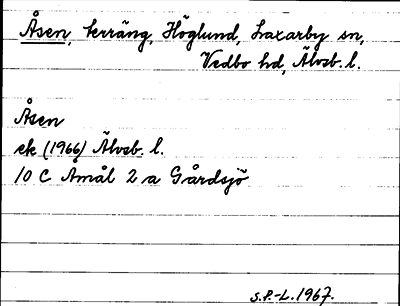 Åsen, terräng, Höglund, Laxarby sn,
Vedbo hd, Älvsb. l.
Åsen
ek (1966) Älvsb. l.
10 C Åmål 2 a Gårdsjö
S.P.-L. 1967.